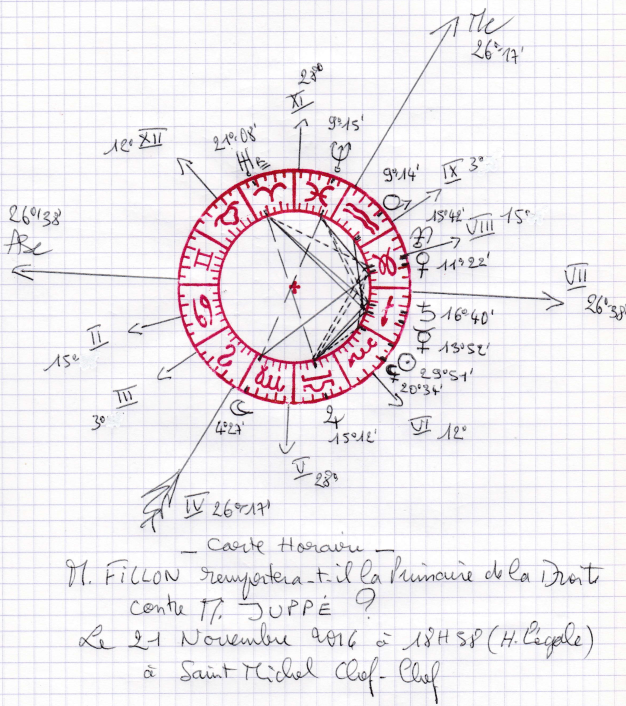 Mc
26°17'
28°
XI
9°15'
♆
21°08'
♅ R
12° XII
9°14'
♂
IX 3°
15°42'
VIII 15°
♀ 11°22'
26°38'
Asc
VII
26°38'
♄ 16°40'
☿ 13°52'
☉ 29°51'
20°34'
15° II
3° III
☾
4°27'
♃
15°12'
VI 12°
V 28°
IV 26°17'
– Carte Horaire –
M. FILLON remportera-t-il la Primaire de la Droite
contre M. JUPPÉ ?
Le 21 Novembre 2016 à 18H58 (H. légale)
à Saint Michel Chef-Chef